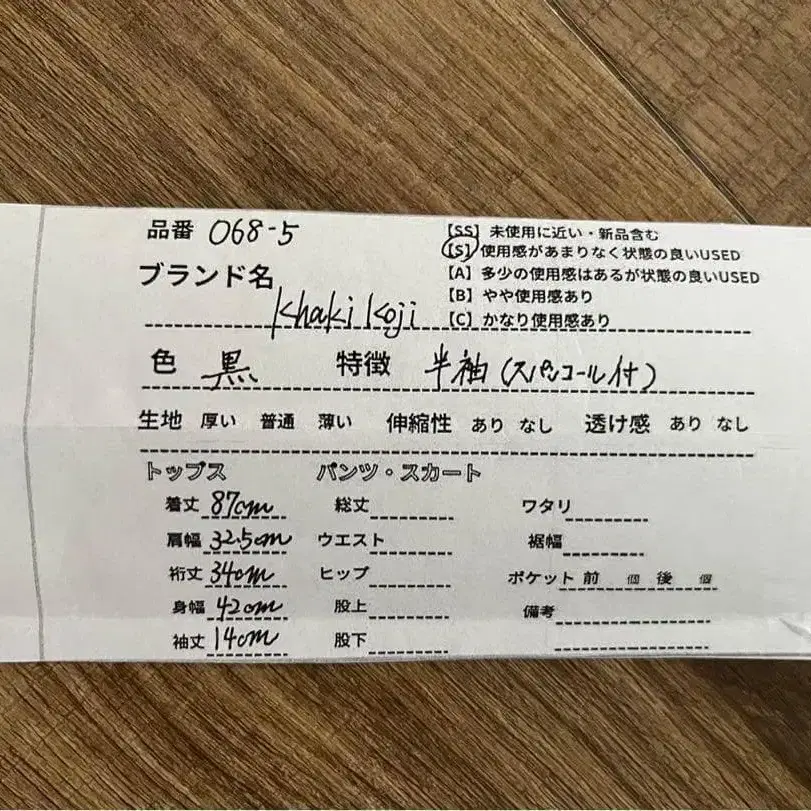 品番 068-5
【SS】未使用に近い・新品含む
【S】使用感があまりなく状態の良いUSED
【A】多少の使用感はあるが状態の良いUSED
【B】やや使用感あり
【C】かなり使用感あり
ブランド名 khaki Koji
色 黒 特徴 半袖(スパンコール付)
生地 厚い 普通 薄い 伸縮性 あり なし 透け感 あり なし
トップス パンツ・スカート
着丈 87cm 総丈 ワタリ
肩幅 32.5cm ウエスト 裾幅
裄丈 34cm ヒップ ポケット 前 個 後 個
身幅 42cm 股上 備考
袖丈 14cm 股下